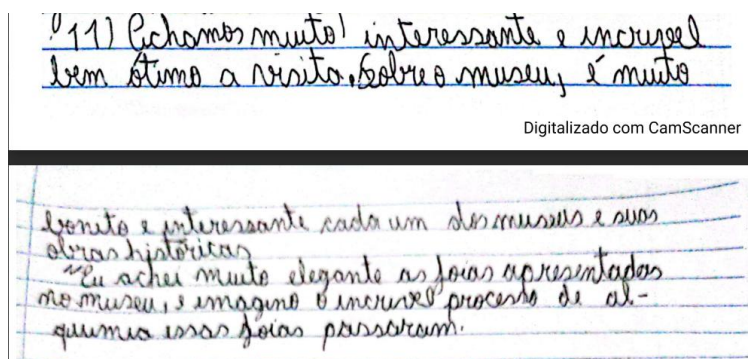 º11) Achamos muito! interessante e incrivel
bem ótimo a visita. Sobre o museu, é muito
Digitalizado com CamScanner
bonito e interessante cada um dos museus e suas
obras históricas
"Eu achei muito elegante as joias apresentadas
no museu, e imagino o incrivel processo de al-
quimia essas joias passaram.